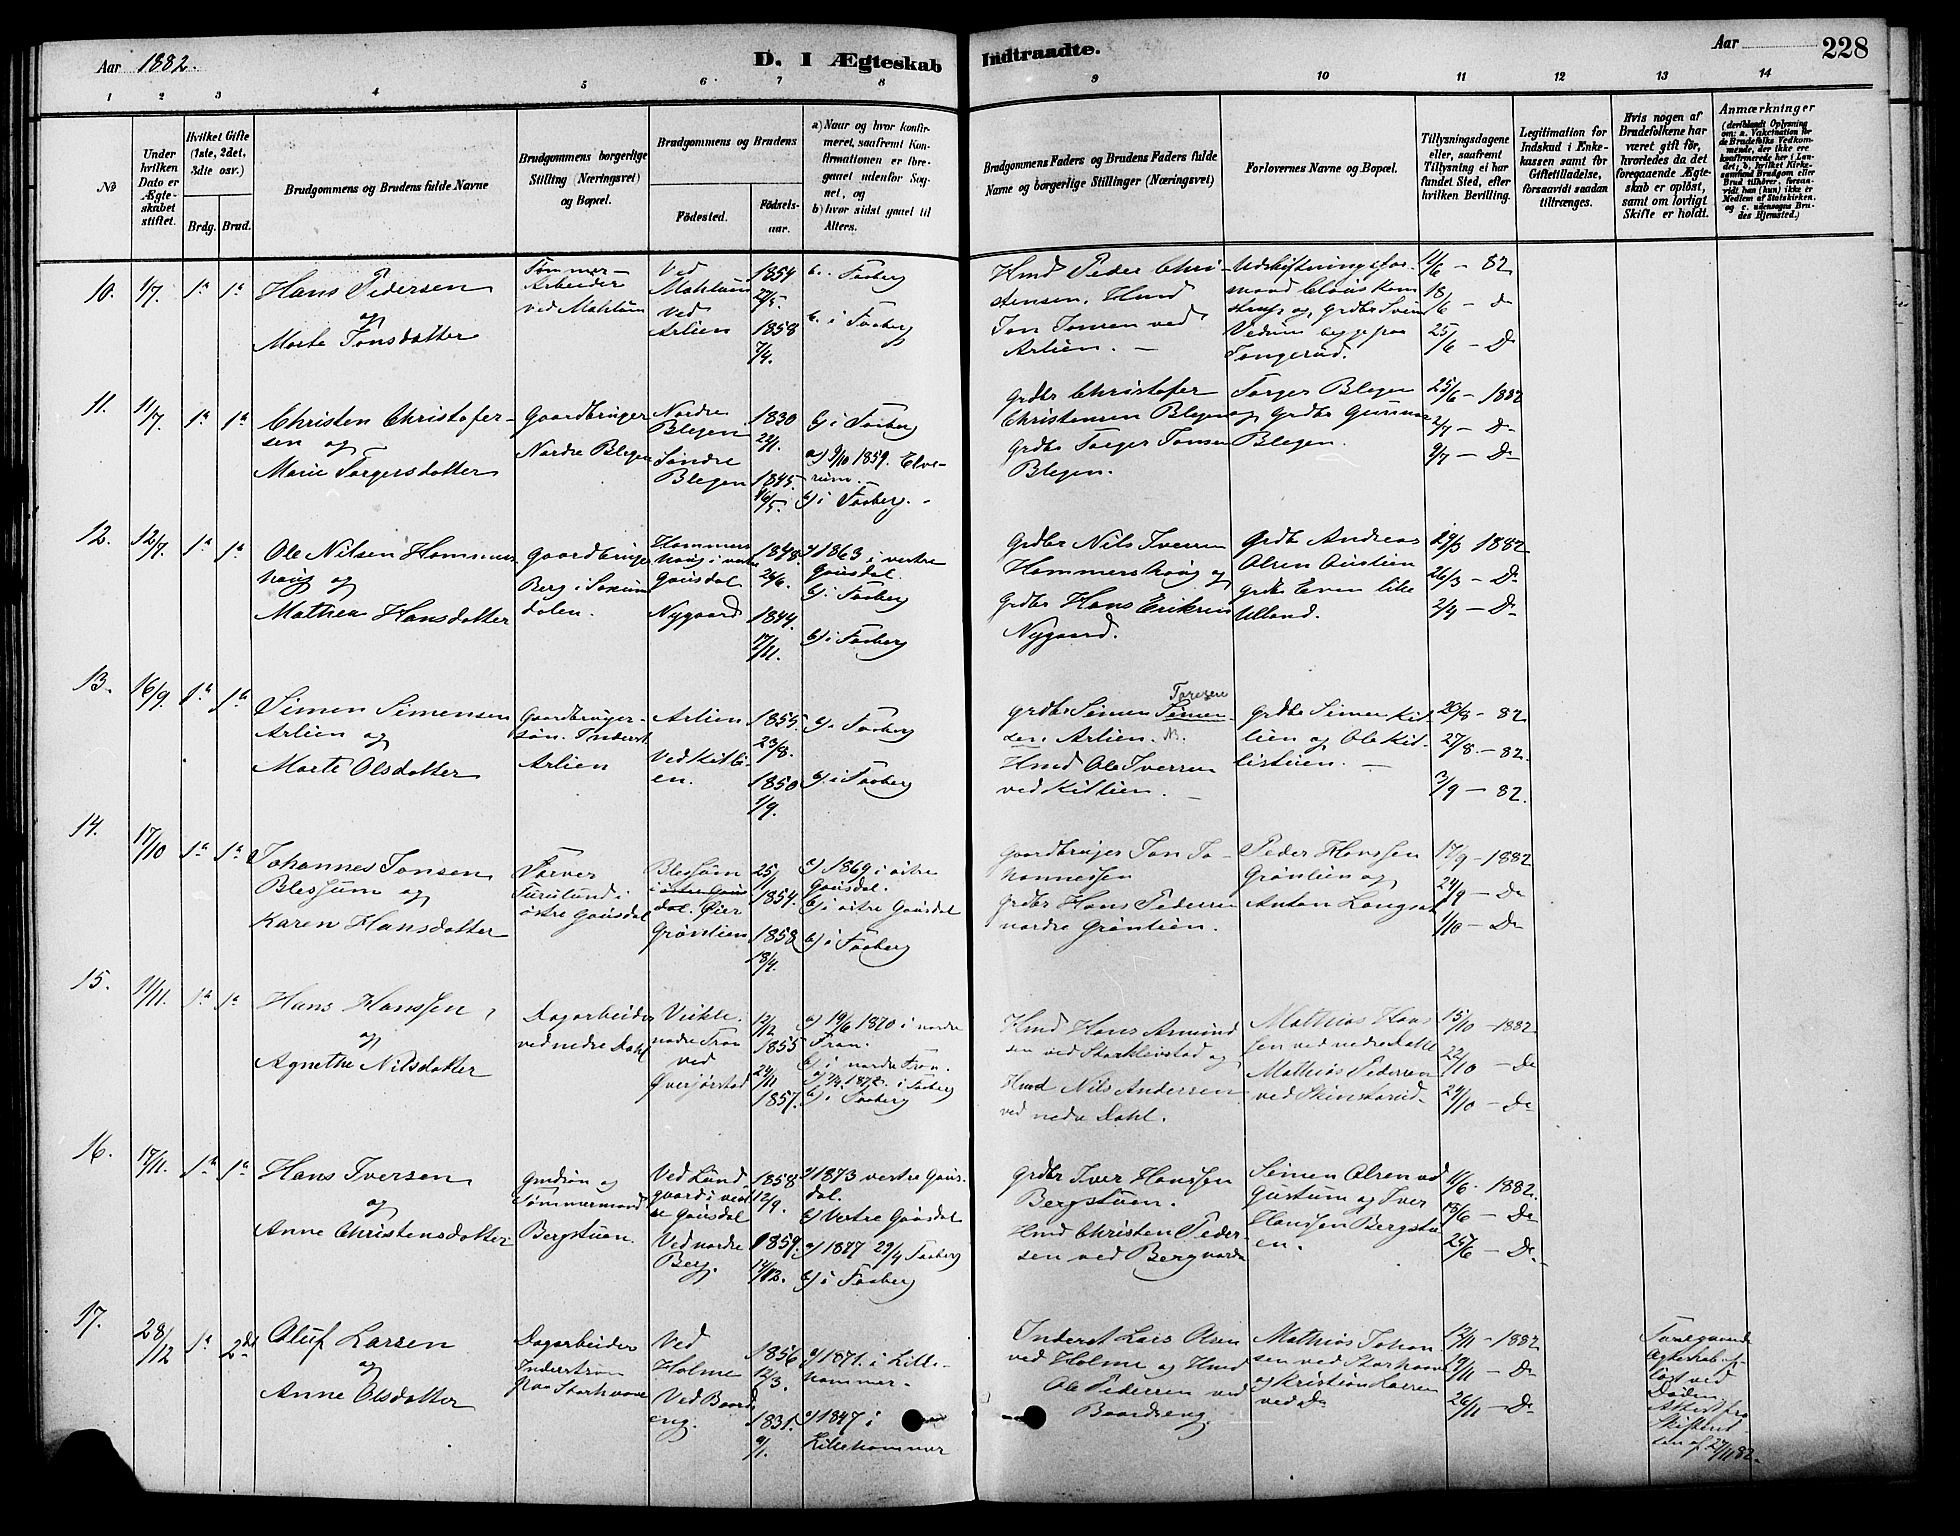 Aar 1882.
D. I Ægteskab
Indtraadte.
Aar
228
1 2 3 4 5 6 7 8 9 10 11 12 13 14
No
Under hvilken Dato er Ægteskabet stiftet.
Hvilket Gifte (1ste, 2det, 3die osv.)
Brdg. Brud.
Brudgommens og Brudens fulde Navne
Brudgommens borgerlige Stilling (Næringsvei) og Bopæl.
Brudgommens og Brudens
Födested.
Födselsaar.
a) Naar og hvor konfirmeret, saafremt Konfirmationen er foregaaet udenfor Sognet, og
b) hvor sidst gaaet til Alters.
Brudgommens Faders og Brudens Faders fulde Navne og borgerlige Stillinger (Næringsvei)
Forlovernes Navne og Bopæl.
Tillysningsdagene eller, saafremt Tillysning ei har fundet Sted, efter hvilken Bevilling.
Legitimation for Indskud i Enkekassen samt for Giftetilladelse, forsaavidt saadan tiltrænges.
Hvis nogen af Brudefolkene har været gift för, hvorledes da det foregaaende Ægteskab er oplöst, samt om lovligt Skifte er holdt.
Anmærkninger
(deriblandt Oplysning om: a. Vakcination for de Brudefolks Vedkommende, der ikke ere konfirmerede her i Landet; b. hvilket Kirkesamfund Brudgom eller Brud tilhörer, forsaavidt han (hun) ikke is Medlem af Statskirken, og c. udensogns Brudes Hjemsted.)
10. 1/7. 1a 1a
Hans Pedersen
og
Marte Jonsdatter
Tömmer-
Arbeider
ved Mahlum
Ved
Mahlum
ved
Arlien
1854
22/5.
1858
7/4.
b. Faaberg
b. i Faaberg
Hmd Peder Chri-
stensen. Hmd
Jon Jonsen ved
Arlien. —
Udskiftningsfor-
mand
Vedum begge paa
Jongerud.
11/6 – 82
18/6 – Do
25/6 – Do
11. 11/7. 1a 1a
Christen Christofer-
sen og
Marie Torgersdatter
Gaardbruger
Nordre Blegen
Nordre
Blegen
Söndre
Blegen
1820
22/1.
1845.
16/5.
b) i Faaberg
a) 9/10 1859. Elve-
rum. —
b) i Faaberg. –
Grdbr Christofer
Christensen Blegen
Grdbr Torger Jonsen
Blegen.
Torger Blegen
og Grdbr Gunnar
Blegen.
25/6 – 1882
2/7 – Do
9/7 – Do
12. 12/7. 1a 1a
Ole Nilsen Hammers-
haug og
Mathea Hansdatter
Gaardbruger
Berg i Saxum-
dalen.
Hammers
haug i vestre
Gausdal
Nygaard
1848.
26/6.
1844.
17/11.
a) 1863 i vestre
Gausdal.
b) i Faaberg
b) i Faaberg
Grdbr Nils Iversen
Hammershaug og
Grdbr Hans Eriksen
Nygaard.
Grdbr Andreas
Olsen Austlien
grdbr Even lille
Ulland.
19/3 1882
26/3 – Do
2/4 – Do
13. 16/9. 1a 1a
Simen Simensen
Arlien og
Marte Olsdatter
Gaardbruger-
sön. Inderst
Arlien
Arlien
Ved Kitli-
en.
1855.
23/8.
1850
1/9.
b. Faaberg
b) i Faaberg
Toresen
grdbr Simen Simen-
sen Arlien. NB.
Hmd Ole Iversen
ved Kitlien. —
Grdbr Simen Kit-
lien og Ole Kit-
listuen. —
20/8 – 82
27/8. – 82.
3/9 – 82.
14. 17/10 1a 1a
Johannes Jonsen
Blessum og
Karen Hansdatter
Farver
Furulund i
östre Gausdal
Blessum
i östre Gaus
dal. Öier
Grönlien
25/1
1854.
1858
18/4.
a) 1869 i östre
Gausdal.
b) i östre Gausdal
b) i Faaberg
Gaardbruger Jon Jo-
hannessen
Grdbr Hans Pedersen
nordre Grönlien.
Peder Hanssen
Grönlien og
Anton Langset
17/9 – 1882
24/9 – Do
1/10 – Do
15. 11/11. 1a 1a
Hans Hanssen,
og
Agnethe Nilsdatter
Dagarbeider
ved nedre Dahl
Veikle.
nordre Fron
ved
Överjörstad
12/12
1855
24/11
1857.
a) 19/6 1870 i nordre
Fron.
b) i nordre Fron.
a) 1872. i Faaberg
b) i Faaberg
Hmd Hans Amund
sen ved Storklevstad og
Hmd Nils Andersen
ved nedre Dahl.
Mathias Hans
sen ved nedre Dahl
Mathias Pedersen
ved Skinstarud.
15/10 – 1882
22/10 – Do
29/10 – Do
16. 17/11. 1a 1a
Hans Iversen
og
Anne Christensdatter
Gmdsön og
Tömmermand
Bergstuen.
Ved Lund
gaard i vest
re Gausdal
Ved nordre
Berg.
1858
12/9.
1859.
14/12.
a) 1873 vestre Gaus-
dal.
b) Vestre Gausdal
a) 1877 29/4 Faaberg
b) i Faaberg
grdbr Iver Hanssen
Bergstuen.
Hmd Christen Peder-
sen ved Berg nordre
Simen Olsen ved
Gustum og Iver
Hanssen Bergstu
en.
11/6. 1882.
18/6 – Do
25/6 – Do
17. 28/12 1a 2det
Oluf Larsen
og
Anne Olsdatter
Dagarbeider
Inderst
paa Storhaave
Ved
Holme
Ved Baards
eng.
1856
12/3.
1831.
9/1.
a) 1871. i Lille-
hammer.
a) 1847 i
Lillehammer
Inderst Lars Olsen
ved Holme og Hmd
Ole Pedersen ved
Baardseng.
Mathias Johan
sen ved Storhaave
og Kristian Larsen
ved Do
12/11 – 1882
19/11 – Do
26/11 – Do
Foregaaende
Ægteskab op-
löst ved
Döden.
Attest fra
Skifteret-
ten af 27/11 82.